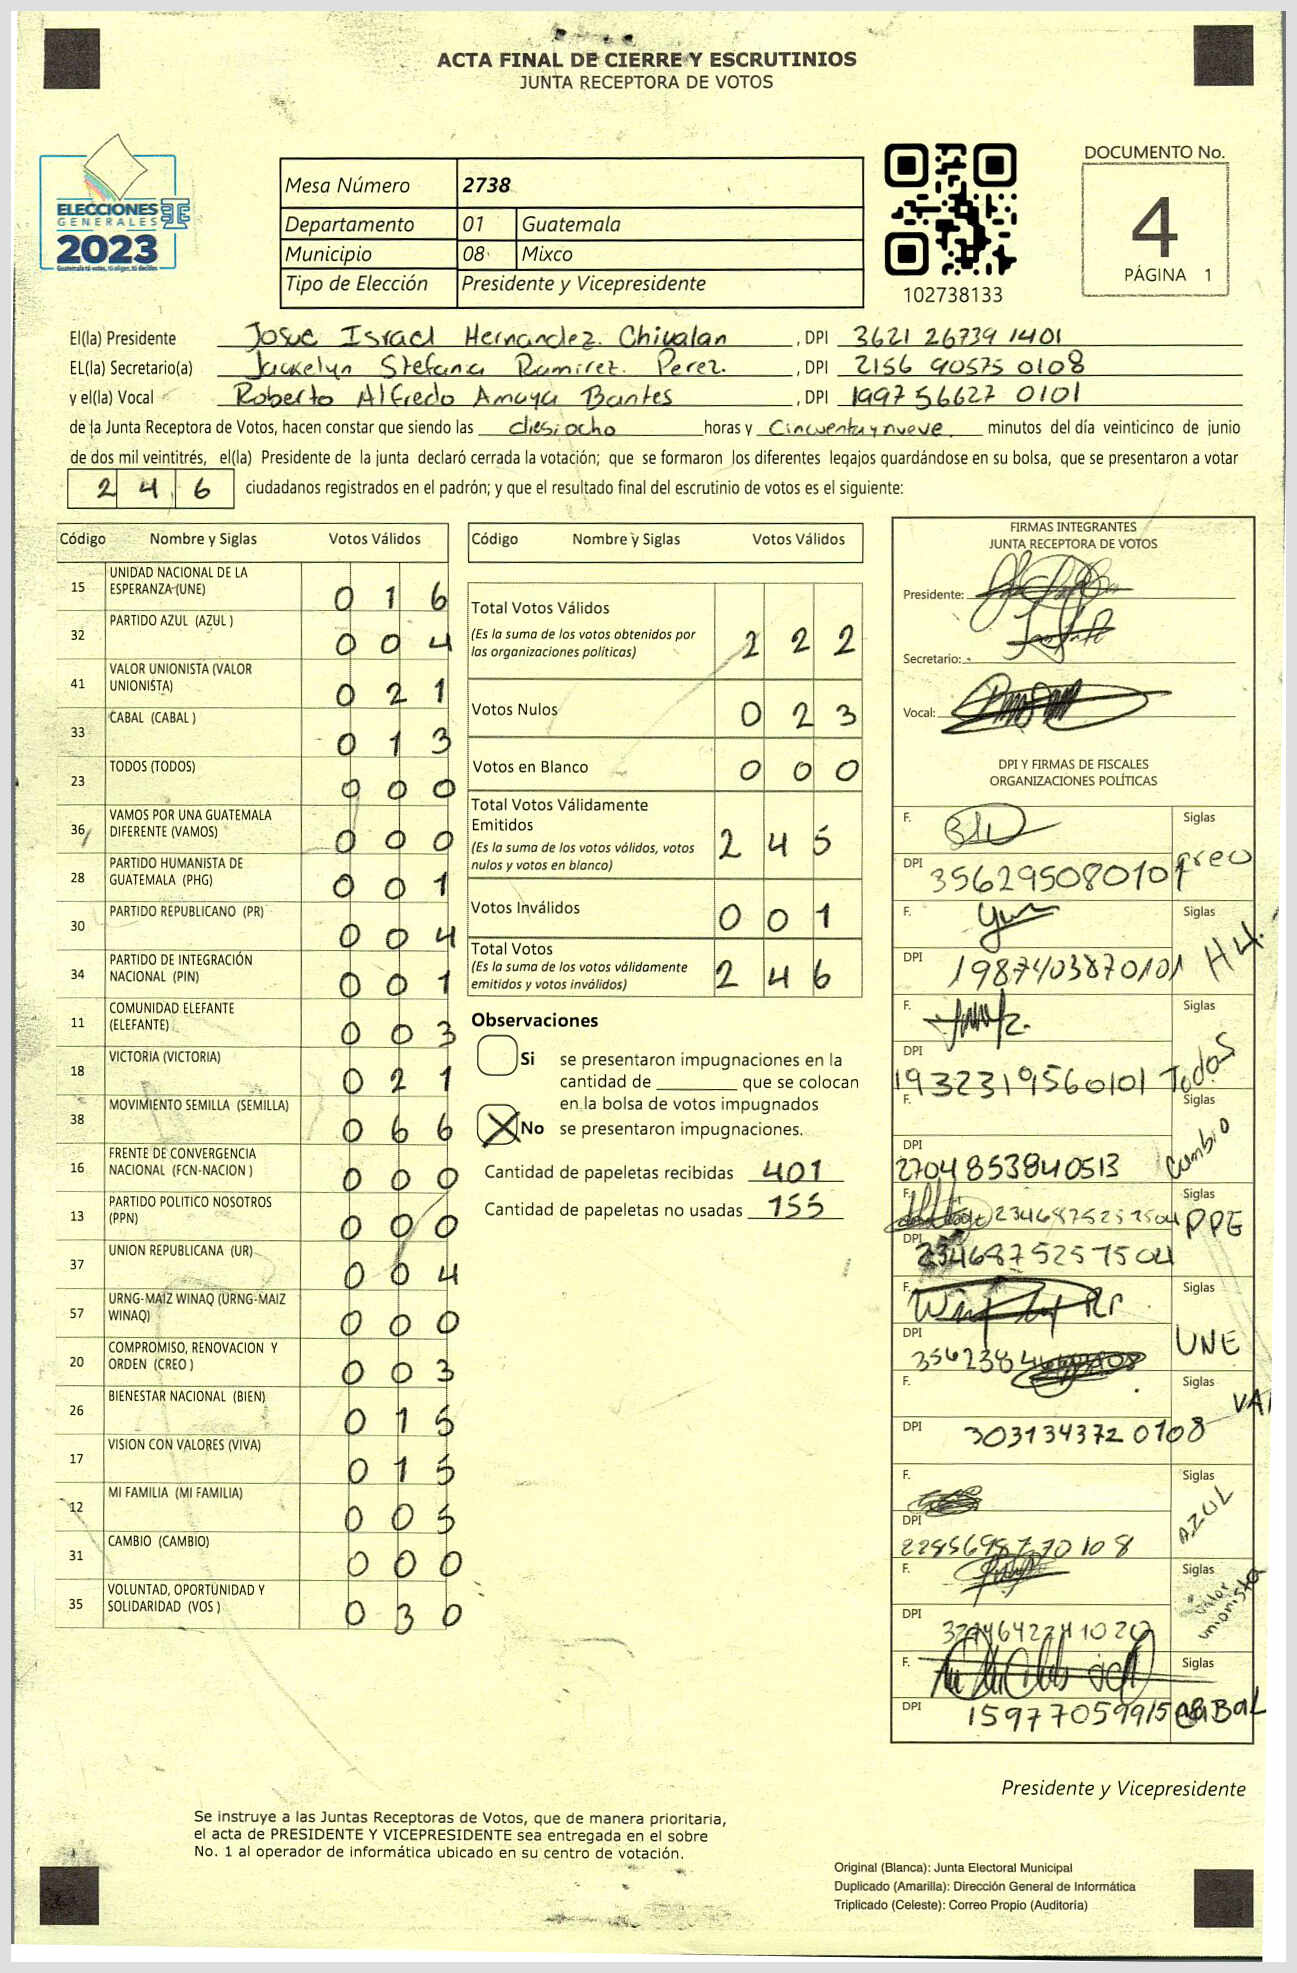 ACTA FINAL DE CIERRE Y ESCRUTINIOS
JUNTA RECEPTORA DE VOTOS
ELECCIONES
GENERALES
2023
Guatemala tú votas, tú eliges, tú decides
Mesa Número 2738
Departamento 01 Guatemala
Municipio 08 Mixco
Tipo de Elección Presidente y Vicepresidente
102738133
DOCUMENTO No.
4
PÁGINA 1
El(la) Presidente Josue Israel Hernandez. Chivalan , DPI 3621 26739 1401
EL(la) Secretario(a) Jackelyn Stefana Ramirez. Perez. , DPI 2156 90575 0108
y el(la) Vocal Roberto Alfredo Amaya Bantes , DPI 1997 56627 0101
de la Junta Receptora de Votos, hacen constar que siendo las diesiocho horas y Cincuenta y nueve minutos del día veinticinco de junio
de dos mil veintitrés, el(la) Presidente de la junta declaró cerrada la votación; que se formaron los diferentes legajos guardándose en su bolsa, que se presentaron a votar
2 4 6 ciudadanos registrados en el padrón; y que el resultado final del escrutinio de votos es el siguiente:
Código Nombre y Siglas Votos Válidos
15 UNIDAD NACIONAL DE LA
ESPERANZA (UNE) 0 1 6
32 PARTIDO AZUL (AZUL ) 0 0 4
41 VALOR UNIONISTA (VALOR
UNIONISTA) 0 2 1
33 CABAL (CABAL ) 0 1 3
23 TODOS (TODOS) 0 0 0
36 VAMOS POR UNA GUATEMALA
DIFERENTE (VAMOS) 0 0 0
28 PARTIDO HUMANISTA DE
GUATEMALA (PHG) 0 0 1
30 PARTIDO REPUBLICANO (PR) 0 0 4
34 PARTIDO DE INTEGRACIÓN
NACIONAL (PIN) 0 0 1
11 COMUNIDAD ELEFANTE
(ELEFANTE) 0 0 3
18 VICTORIA (VICTORIA) 0 2 1
38 MOVIMIENTO SEMILLA (SEMILLA) 0 6 6
16 FRENTE DE CONVERGENCIA
NACIONAL (FCN-NACION ) 0 0 0
13 PARTIDO POLITICO NOSOTROS
(PPN) 0 0 0
37 UNION REPUBLICANA (UR) 0 0 4
57 URNG-MAIZ WINAQ (URNG-MAIZ
WINAQ) 0 0 0
20 COMPROMISO, RENOVACION Y
ORDEN (CREO ) 0 0 3
26 BIENESTAR NACIONAL (BIEN) 0 1 5
17 VISION CON VALORES (VIVA) 0 1 5
12 MI FAMILIA (MI FAMILIA) 0 0 5
31 CAMBIO (CAMBIO) 0 0 0
35 VOLUNTAD, OPORTUNIDAD Y
SOLIDARIDAD (VOS ) 0 3 0
Código Nombre y Siglas Votos Válidos
Total Votos Válidos
(Es la suma de los votos obtenidos por
las organizaciones políticas) 2 2 2
Votos Nulos 0 2 3
Votos en Blanco 0 0 0
Total Votos Válidamente
Emitidos
(Es la suma de los votos válidos, votos
nulos y votos en blanco) 2 4 5
Votos Inválidos 0 0 1
Total Votos
(Es la suma de los votos válidamente
emitidos y votos inválidos) 2 4 6
Observaciones
Si se presentaron impugnaciones en la
cantidad de ________ que se colocan
en la bolsa de votos impugnados
X No se presentaron impugnaciones.
Cantidad de papeletas recibidas 401
Cantidad de papeletas no usadas 155
FIRMAS INTEGRANTES
JUNTA RECEPTORA DE VOTOS
Presidente:
Secretario:
Vocal:
DPI Y FIRMAS DE FISCALES
ORGANIZACIONES POLÍTICAS
F. Siglas
DPI 356295080101 Creo
F. Siglas
DPI 1987403870101
F. Siglas
DPI 1932319560101 Todos
F. Siglas
DPI 2704853840513 Cambio
F. Siglas
DPI PPE
F. Siglas
DPI UNE
F. Siglas
DPI 3031343720108 VA
F. Siglas
DPI AZUL
F. Siglas
DPI Valor
unionista
F. Siglas
DPI CABAL
Presidente y Vicepresidente
Se instruye a las Juntas Receptoras de Votos, que de manera prioritaria,
el acta de PRESIDENTE Y VICEPRESIDENTE sea entregada en el sobre
No. 1 al operador de informática ubicado en su centro de votación.
Original (Blanca): Junta Electoral Municipal
Duplicado (Amarilla): Dirección General de Informática
Triplicado (Celeste): Correo Propio (Auditoría)